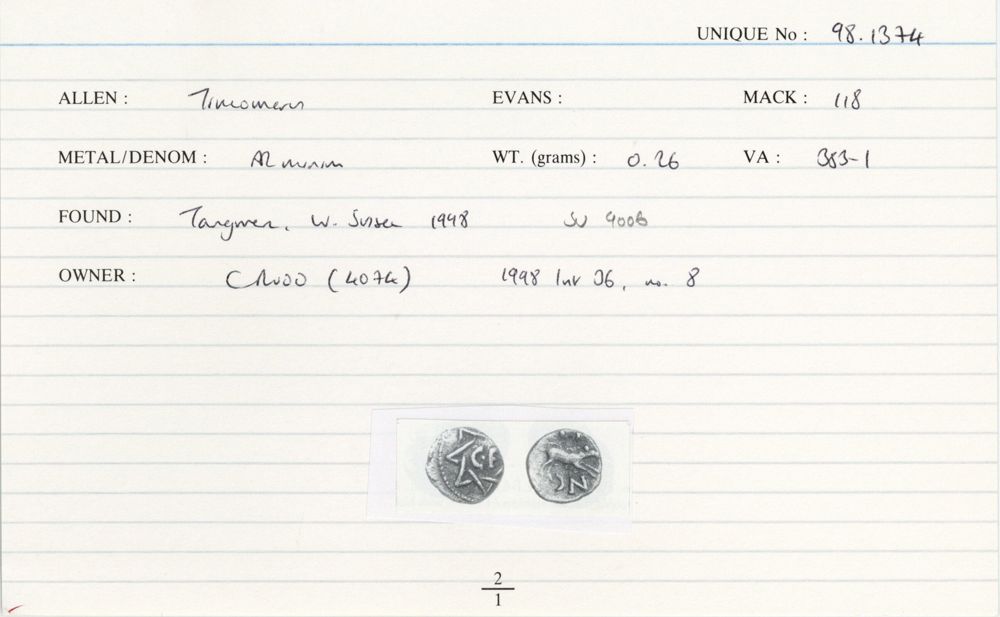 UNIQUE No : 98.1374
ALLEN : Tincomarus EVANS : MACK : 118
METAL/DENOM : AR minim WT. (grams) : 0.26 VA : 383-1
FOUND : Tangmere, W. Sussex 1998 SU 9006
OWNER : C RUDD (4074) 1998 Inv 36, no. 8
C·F
NC
2
1